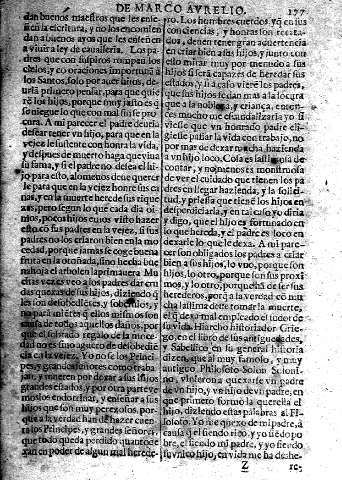 DE MARCO AVRELIO. 177
dan buenos maestros que les ense
ñen la escritura, y no los encomien
dan a buenos ayos que les enseñen
a viuir a ley de caualleria. Los pa-
dres que con suspiros rompen los
cielos, y cõ oraciones importunã a
los Santos, solo por auer hijos, de-
urlã primero pensar, para que quie
rẽ los hijos, porque muy justo es q̃
se niegue lo que con mal fin se pro
cura. A mi parecer el padre deuria
dessear tener vn hijo, para que en la
vejez le sustente con honra la vida,
y despues de muerto haga que viua
su fama, y si el padre no dessea el hi-
jo para esto, alomenos deue querer
le para que en la vejez honre sus ca
nas, y en la muerte herede sus rique
zas, pero segun lo que cada dia vi-
mos, pocos hijos cuyos visto hazer
esto cõ sus padres en la vejez, si sus
padres no los criaron bien en la mo
cedad, porque jamas se coge buena
fruta en la otoñada, sino hecha bue
na hoja el arbol en la primauera. Mu
chas vezes veo a los padres dar cru
das quexas de sus hijos, diziendo q̃
les son desobedientes, y soberuios, y
no parã miẽtes q̃ ellos mismos son
causa de todos aquellos daños, por
que el sobrado regalo de la moce-
dad no es sino aguero de desobediẽ
cia en la vejez. Yo no se los Princi-
pes, y grandes señores como traba-
jan, y mueren por dexar a sus hijos
grandes estados, y por otra parte ve
mos los endotrinar, y enseñar a sus
hijos que son muy perezosos, por-
que a la verdad han de hazer cuen-
ta los Principes, y grandes señores
que todo queda perdido quando de
xan en poder de algun mal herede-
ro. Los hombres cuerdos, y q̃ en sus
consciencias, y honras son recata-
dos, deuen tener gran aduertencia
en criar bien a sus hijos, y junto con
ello mirar muy por menudo a sus
hijos si serã capazes de heredar sus
estados, y si a caso viere los padres,
que sus hijos se dan mas a la locura
que a la nobleza, y criança, enton-
ces mucho me escandalizaria yo si
viesse que vn honrado padre eli-
giesse passar la vida con trabajo, no
por mas de dexar mucha hazienda
a vn hijo loco. Cosa es lastimosa de
contar, y no menos es monstruosa
de ver el cuidado que tienen los pa
dres en llegar hazienda, y la solici-
tud, y priessa que tienẽ los hijos en
desperdiciarla, y en tal caso yo diria
y digo, que el hijo es fortunado en
lo que hereda, y el padre es loco en
dexarle lo que le dexa. A mi pare-
cer son obligados los padres a criar
bien a sus hijos, lo vno, porque son
hijos, lo otro, porque son sus proxi
mos, y lo otro, porque hã de ser sus
herederos, porq̃ a la verdad cõ mu
cha lastima deue tomar la muerte,
el q̃ dexa mal empleado el sudor de
su vida. Hiarcho historiador Grie-
go, en el libro de sus antiguedades,
y Sabelico en su general historia
dizen, que al muy famoso, y muy
antiguo Philosofo Solon Soloni-
no, vinieron a quexarse vn padre
de vn hijo, y vn hijo de vn padre, en
que primero formò la querella el
hijo, diziendo estas palabras al Fi-
losofo. Yo me quexo de mi padre, a
causa q̃ el siendo rico, y yo siẽdo po
bre, el siendo mi padre, y yo siẽdo
su vnico hijo, en vida me ha deshe-
Z re-